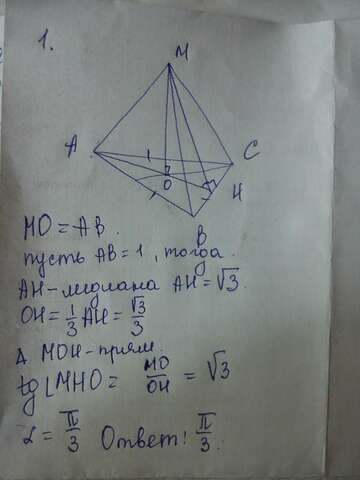 1.
M
A
C
O
H
B
MO = AB.
пусть AB = 1, тогда.
AH - медиана AH = √3.
OH = 1/3 AH = √3/3
Δ MOH - прям.
tg ∠MHO = MO/OH = √3
∠ = π/3 Ответ: π/3.